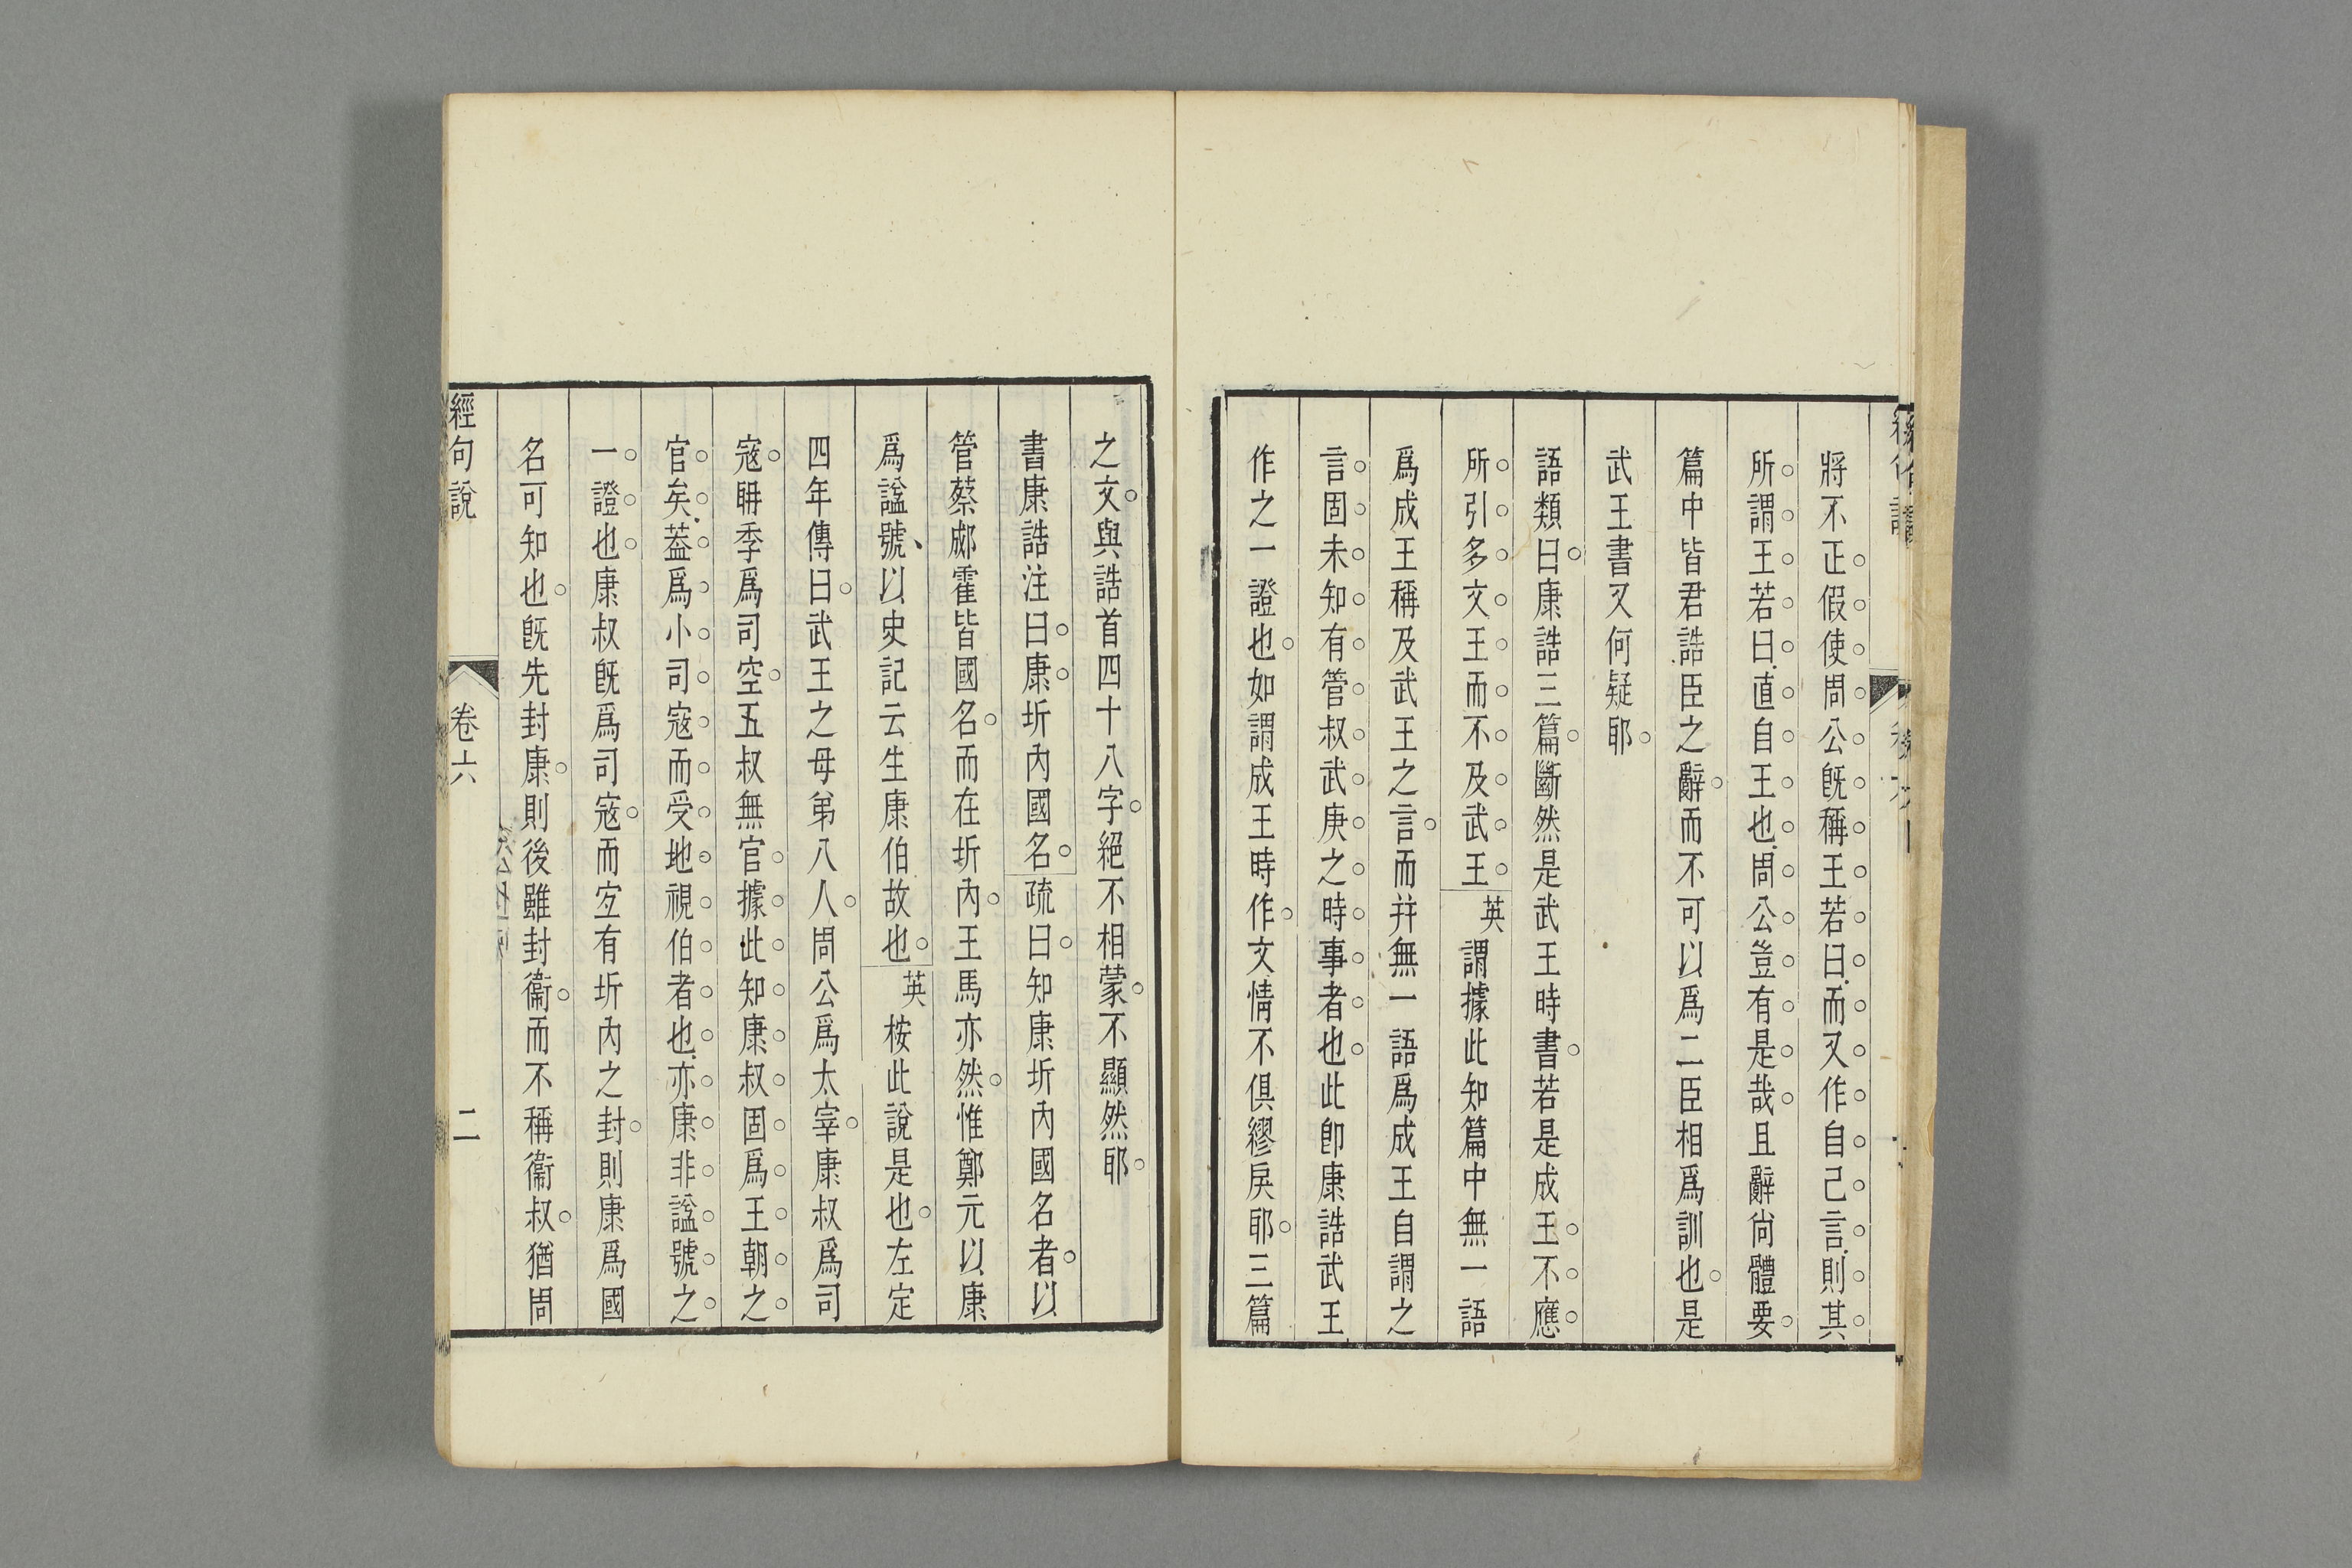 將不正假使周公旣稱王若曰而又作自己言則其
所謂王若曰直自王也周公豈有是哉且辭尙體要
篇中皆君誥臣之辭而不可以爲二臣相爲訓也是
武王書又何疑耶
語類曰康誥三篇斷然是武王時書若是成王不應
所引多文王而不及武王英謂據此知篇中無一語
爲成王稱及武王之言而幷無一語爲成王自謂之
言固未知有管叔武庚之時事者也此卽康誥武王
作之一證也如謂成王時作文情不俱繆戾耶三篇
之文與誥首四十八字絕不相蒙不顯然耶
書康誥注曰康圻內國名疏曰知康圻內國名者以
管蔡郕霍皆國名而在圻內王馬亦然惟鄭元以康
爲諡號以史記云生康伯故也英桉此說是也左定
四年傳曰武王之母弟八人周公爲太宰康叔爲司
寇聃季爲司空五叔無官據此知康叔固爲王朝之
官矣蓋爲小司寇而受地視伯者也亦康非諡號之
一證也康叔旣爲司寇而宜有圻內之封則康爲國
名可知也旣先封康則後雖封衞而不稱衞叔猶周
經句說
卷六
二